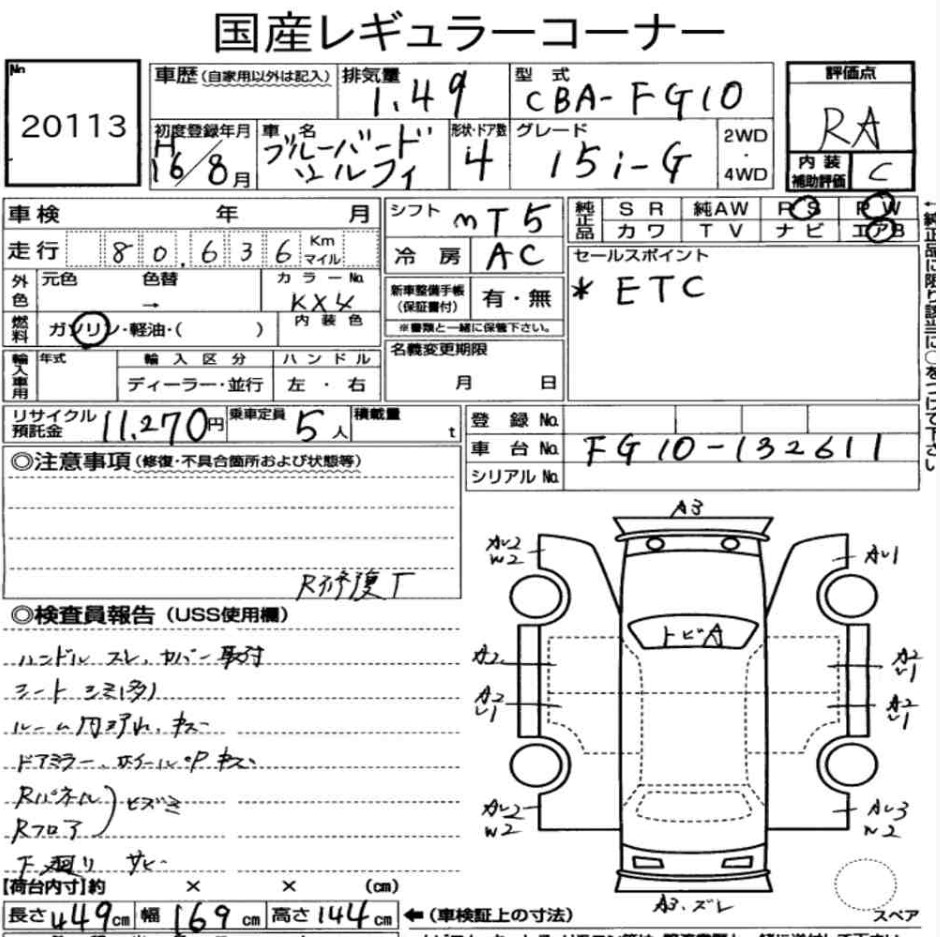 国産レギュラーコーナー
No. 20113
車歴(自家用以外は記入)
排気量 1.49
型式 CBA-FG10
評価点 RA
初度登録年月 H16/8月
車名 ブルーバードシルフィ
形状・ドア数 4
グレード 15i-G
2WD・4WD
内装補助評価 C
車検 年 月
シフト MT5
純正品 SR 純AW PS PW
カワ TV ナビ エアB
走行 80,636 Km マイル
冷房 AC
セールスポイント
* ETC
外色 元色 色替 → カラーNo. KX4
新車整備手帳(保証書付) 有・無
※書類と一緒に保管下さい。
燃料 ガソリン・軽油・( ) 内装色
名義変更期限 月 日
輸入車用 年式 輸入区分 ハンドル
ディーラー・並行 左・右
←純正品に限り該当に○をつけて下さい
リサイクル預託金 11,270円 乗車定員 5人 積載量 t
登録No.
車台No. FG10-132611
シリアルNo.
◎注意事項(修復・不具合箇所および状態等)
R修復T
◎検査員報告(USS使用欄)
ハンドル スレ、カバー取付
シート シミ(多)
ルーム内汚れ、キズ
ドアミラー、ホイールCP キズ
Rパネル
Rフロア ヒズミ
下廻り サビ
A3
Aし2
W2
Aし1
トビA
A2
A2
し1
A2
し1
A2
し1
Aし2
W2
Aし3
W2
A3・ズレ
スペア
【荷台内寸】約 × × (cm)
長さ449cm 幅169cm 高さ144cm ←(車検証上の寸法)